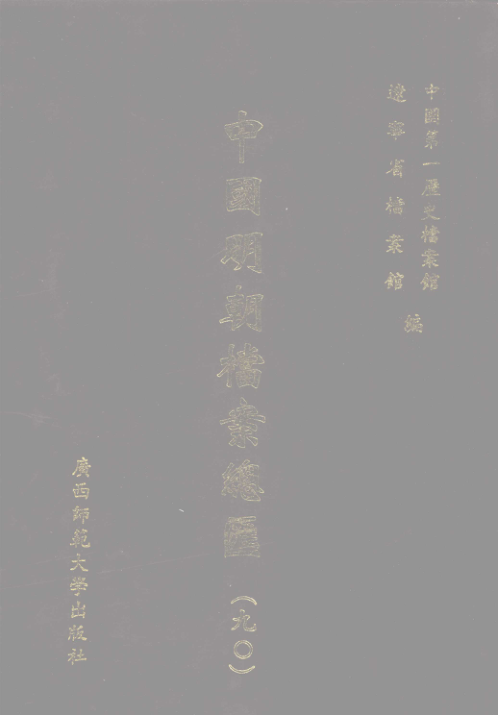 中國第一歷史檔案館
遼寧省檔案館
編
中國明朝檔案總匯
(九〇)
廣西師範大学出版社